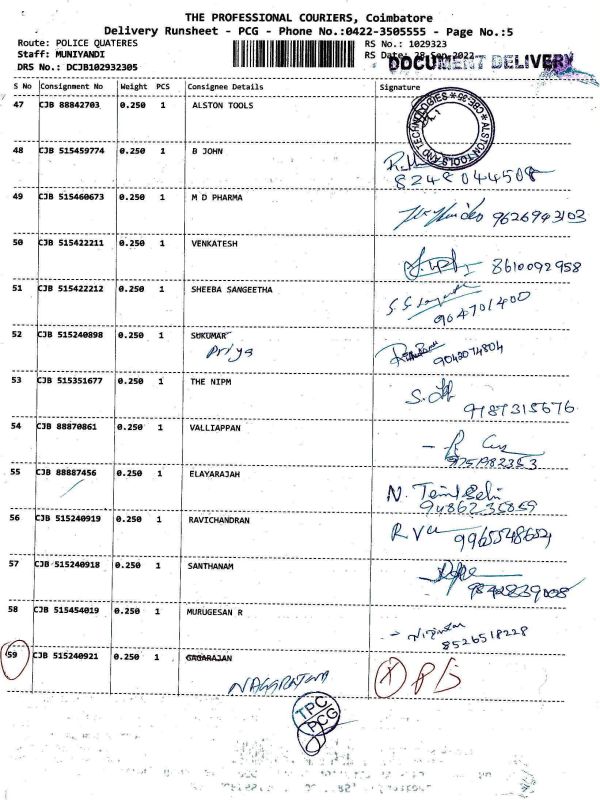 THE PROFESSIONAL COURIERS, Coimbatore
Delivery Runsheet - PCG - Phone No.:0422-3505555 - Page No.:5
Route: POLICE QUATERES RS No.: 1029323
Staff: MUNIYANDI RS Date: 28-Sep-2022
DRS No.: DCJB102932305 DOCUMENT DELIVERY
S No Consignment No Weight PCS Consignee Details Signature
47 CJB 88842703 0.250 1 ALSTON TOOLS
ALSTON TOOLS AND TECHNOLOGIES
48 CJB 515459774 0.250 1 B JOHN
8248044508
49 CJB 515460673 0.250 1 M D PHARMA 9626943103
50 CJB 515422211 0.250 1 VENKATESH 8610092958
51 CJB 515422212 0.250 1 SHEEBA SANGEETHA
904701400
52 CJB 515240898 0.250 1 SUKUMAR
Priya 9043074804
53 CJB 515351677 0.250 1 THE NIPM
9187315676
54 CJB 88870861 0.250 1 VALLIAPPAN
9751982353
55 CJB 88887456 0.250 1 ELAYARAJAH
9486235859
56 CJB 515240919 0.250 1 RAVICHANDRAN
9965548654
57 CJB 515240918 0.250 1 SANTHANAM
9842839008
58 CJB 515454019 0.250 1 MURUGESAN R
8526518228
59 CJB 515240921 0.250 1 GAGARAJAN
TPC
PCG